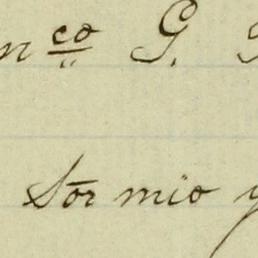 nco G. G
Sor mio y